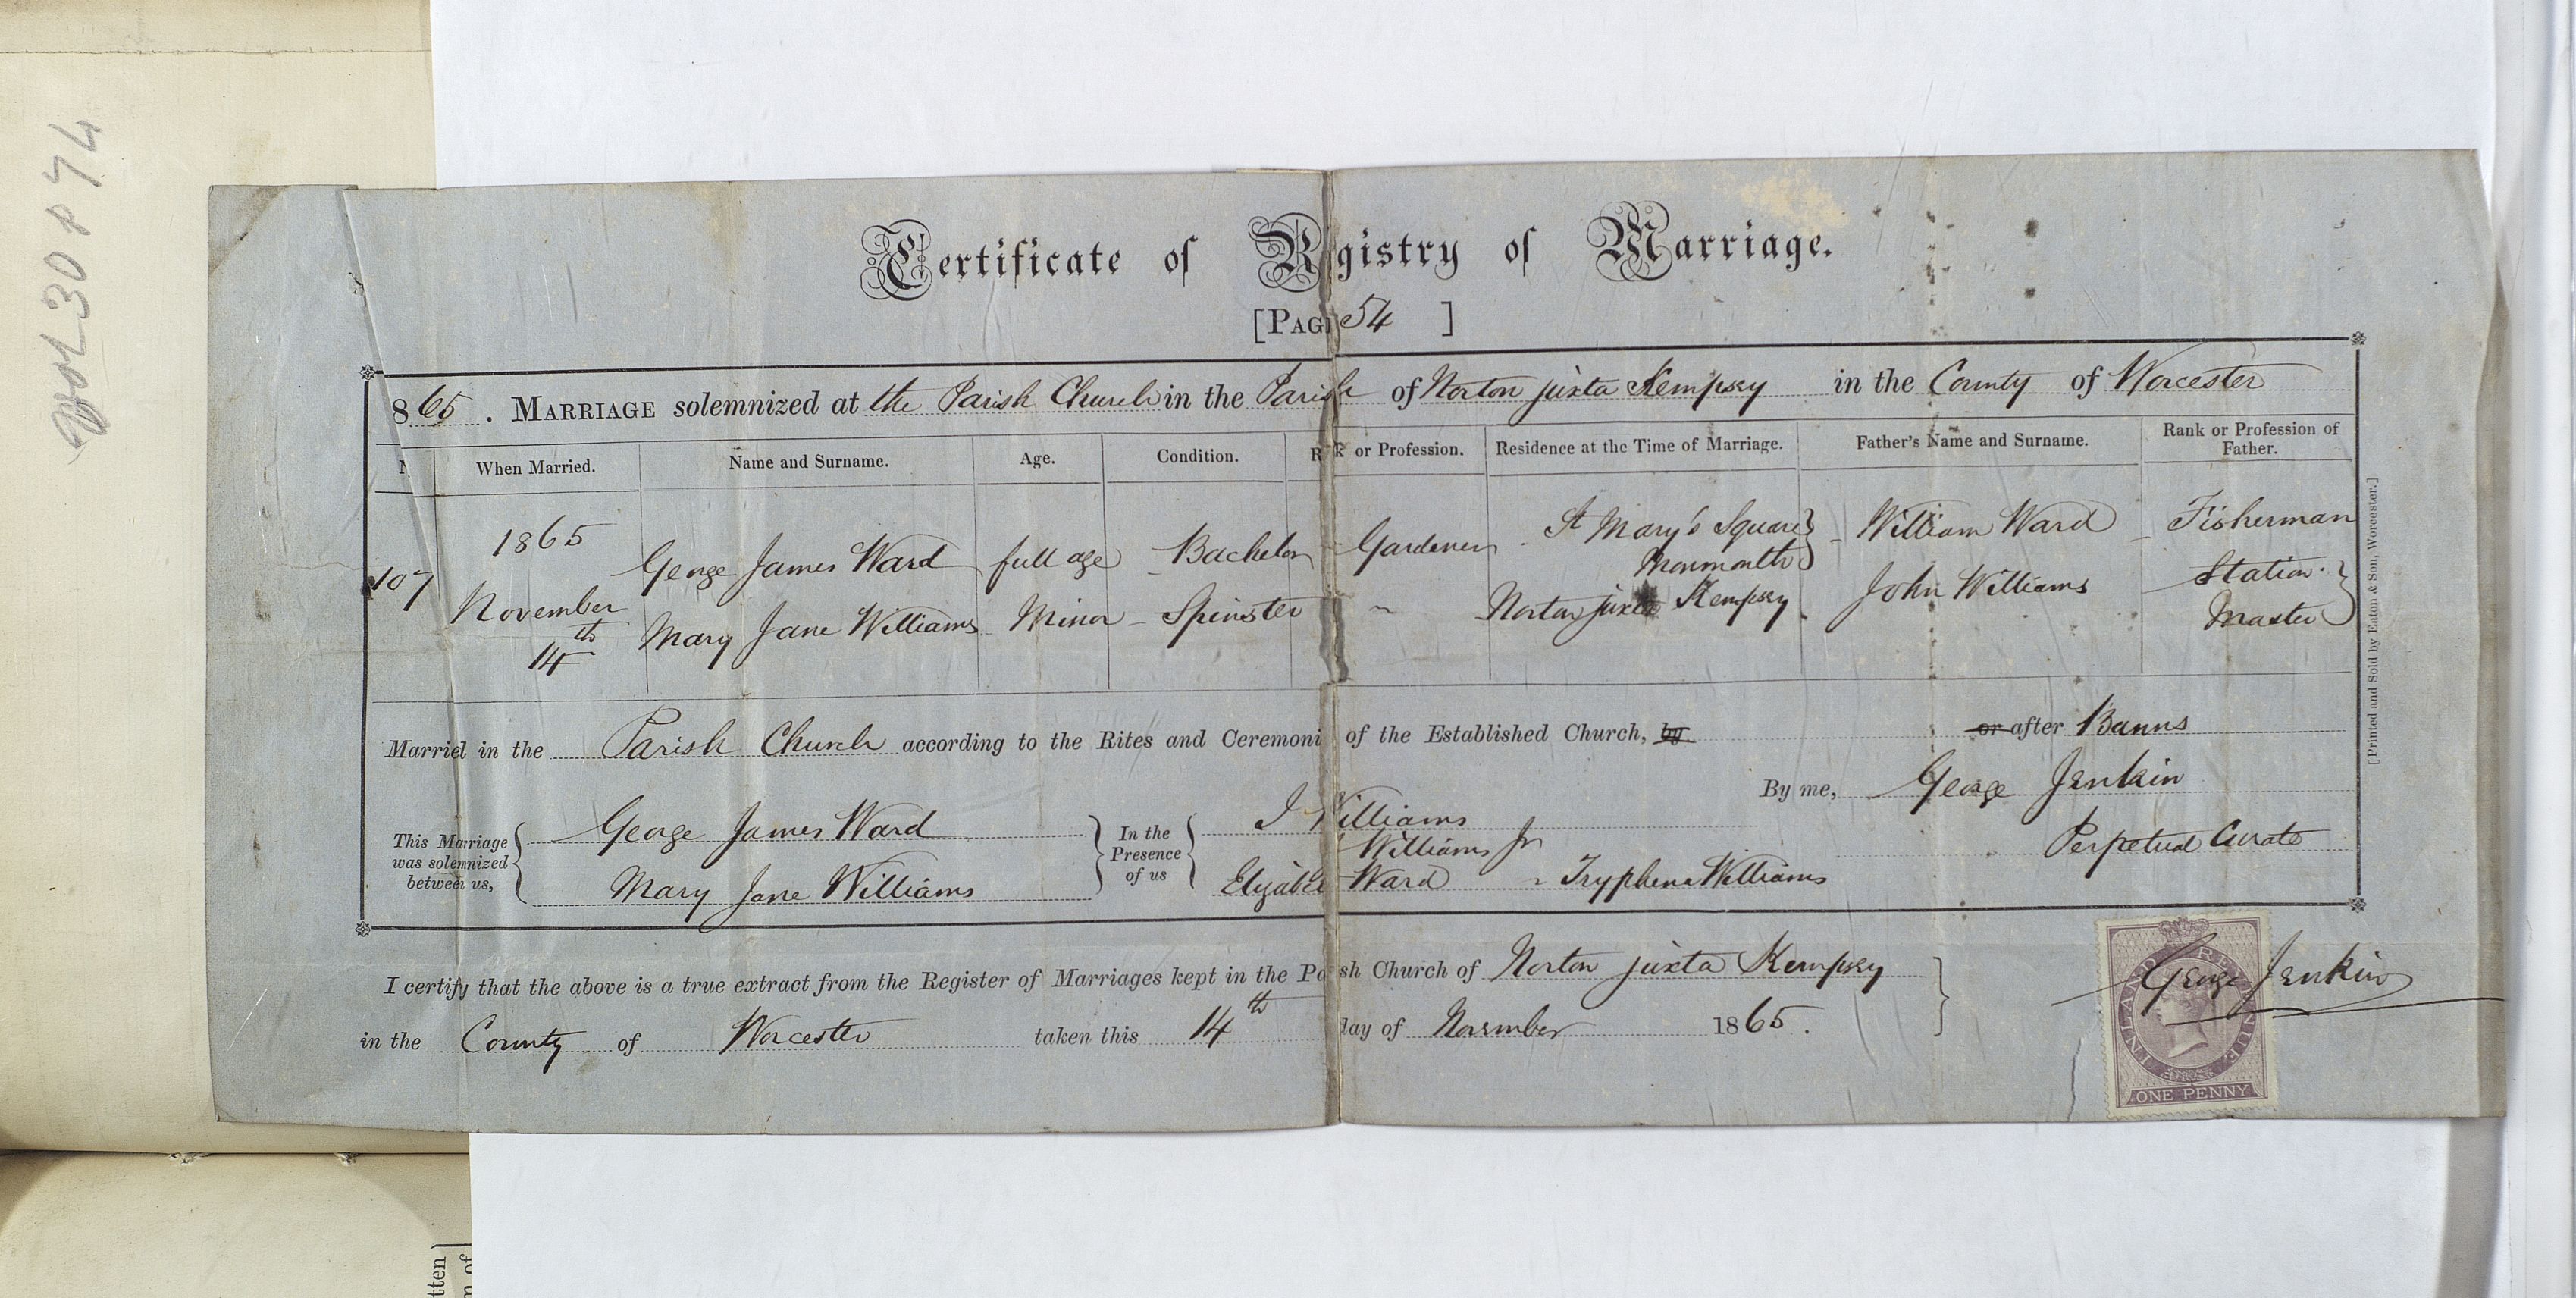 Vol 30 p 74
Certificate of Registry of Marriage.
[PAG 54 ]
865. MARRIAGE solemnized at the Parish Church in the Parish of Norton juxta Kempsey in the County of Worcester
N When Married. Name and Surname. Age. Condition. R k or Profession. Residence at the Time of Marriage. Father's Name and Surname. Rank or Profession of Father.
107 1865 November 14th
George James Ward full age Bachelor Gardener St Mary's Square Monmouth William Ward Fisherman
Mary Jane Williams Minor Spinster ~ Norton juxta Kempsey John Williams Station Master
Married in the Parish Church according to the Rites and Ceremoni of the Established Church, by or after Banns
By me, George Jenkin
Perpetual Curate
This Marriage was solemnized between us,
George James Ward
Mary Jane Williams
In the Presence of us
J Williams
Williams Jr
Elizabe Ward - Tryphena Williams
I certify that the above is a true extract from the Register of Marriages kept in the Parish Church of Norton juxta Kempsey
in the County of Worcester taken this 14th day of November 1865.
George Jenkin
INLAND REVENUE
ONE PENNY
[Printed and Sold by Eaton & Son, Worcester.]
tten
m of